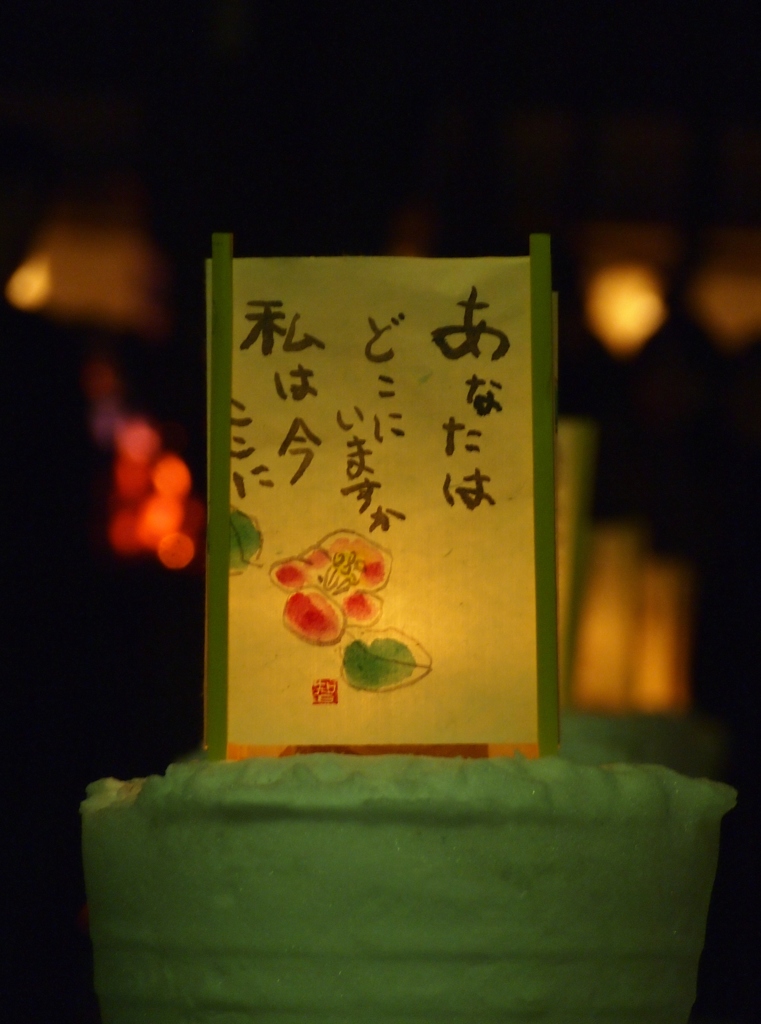 あなたは
どこに
いますか
私は今
ここに
智